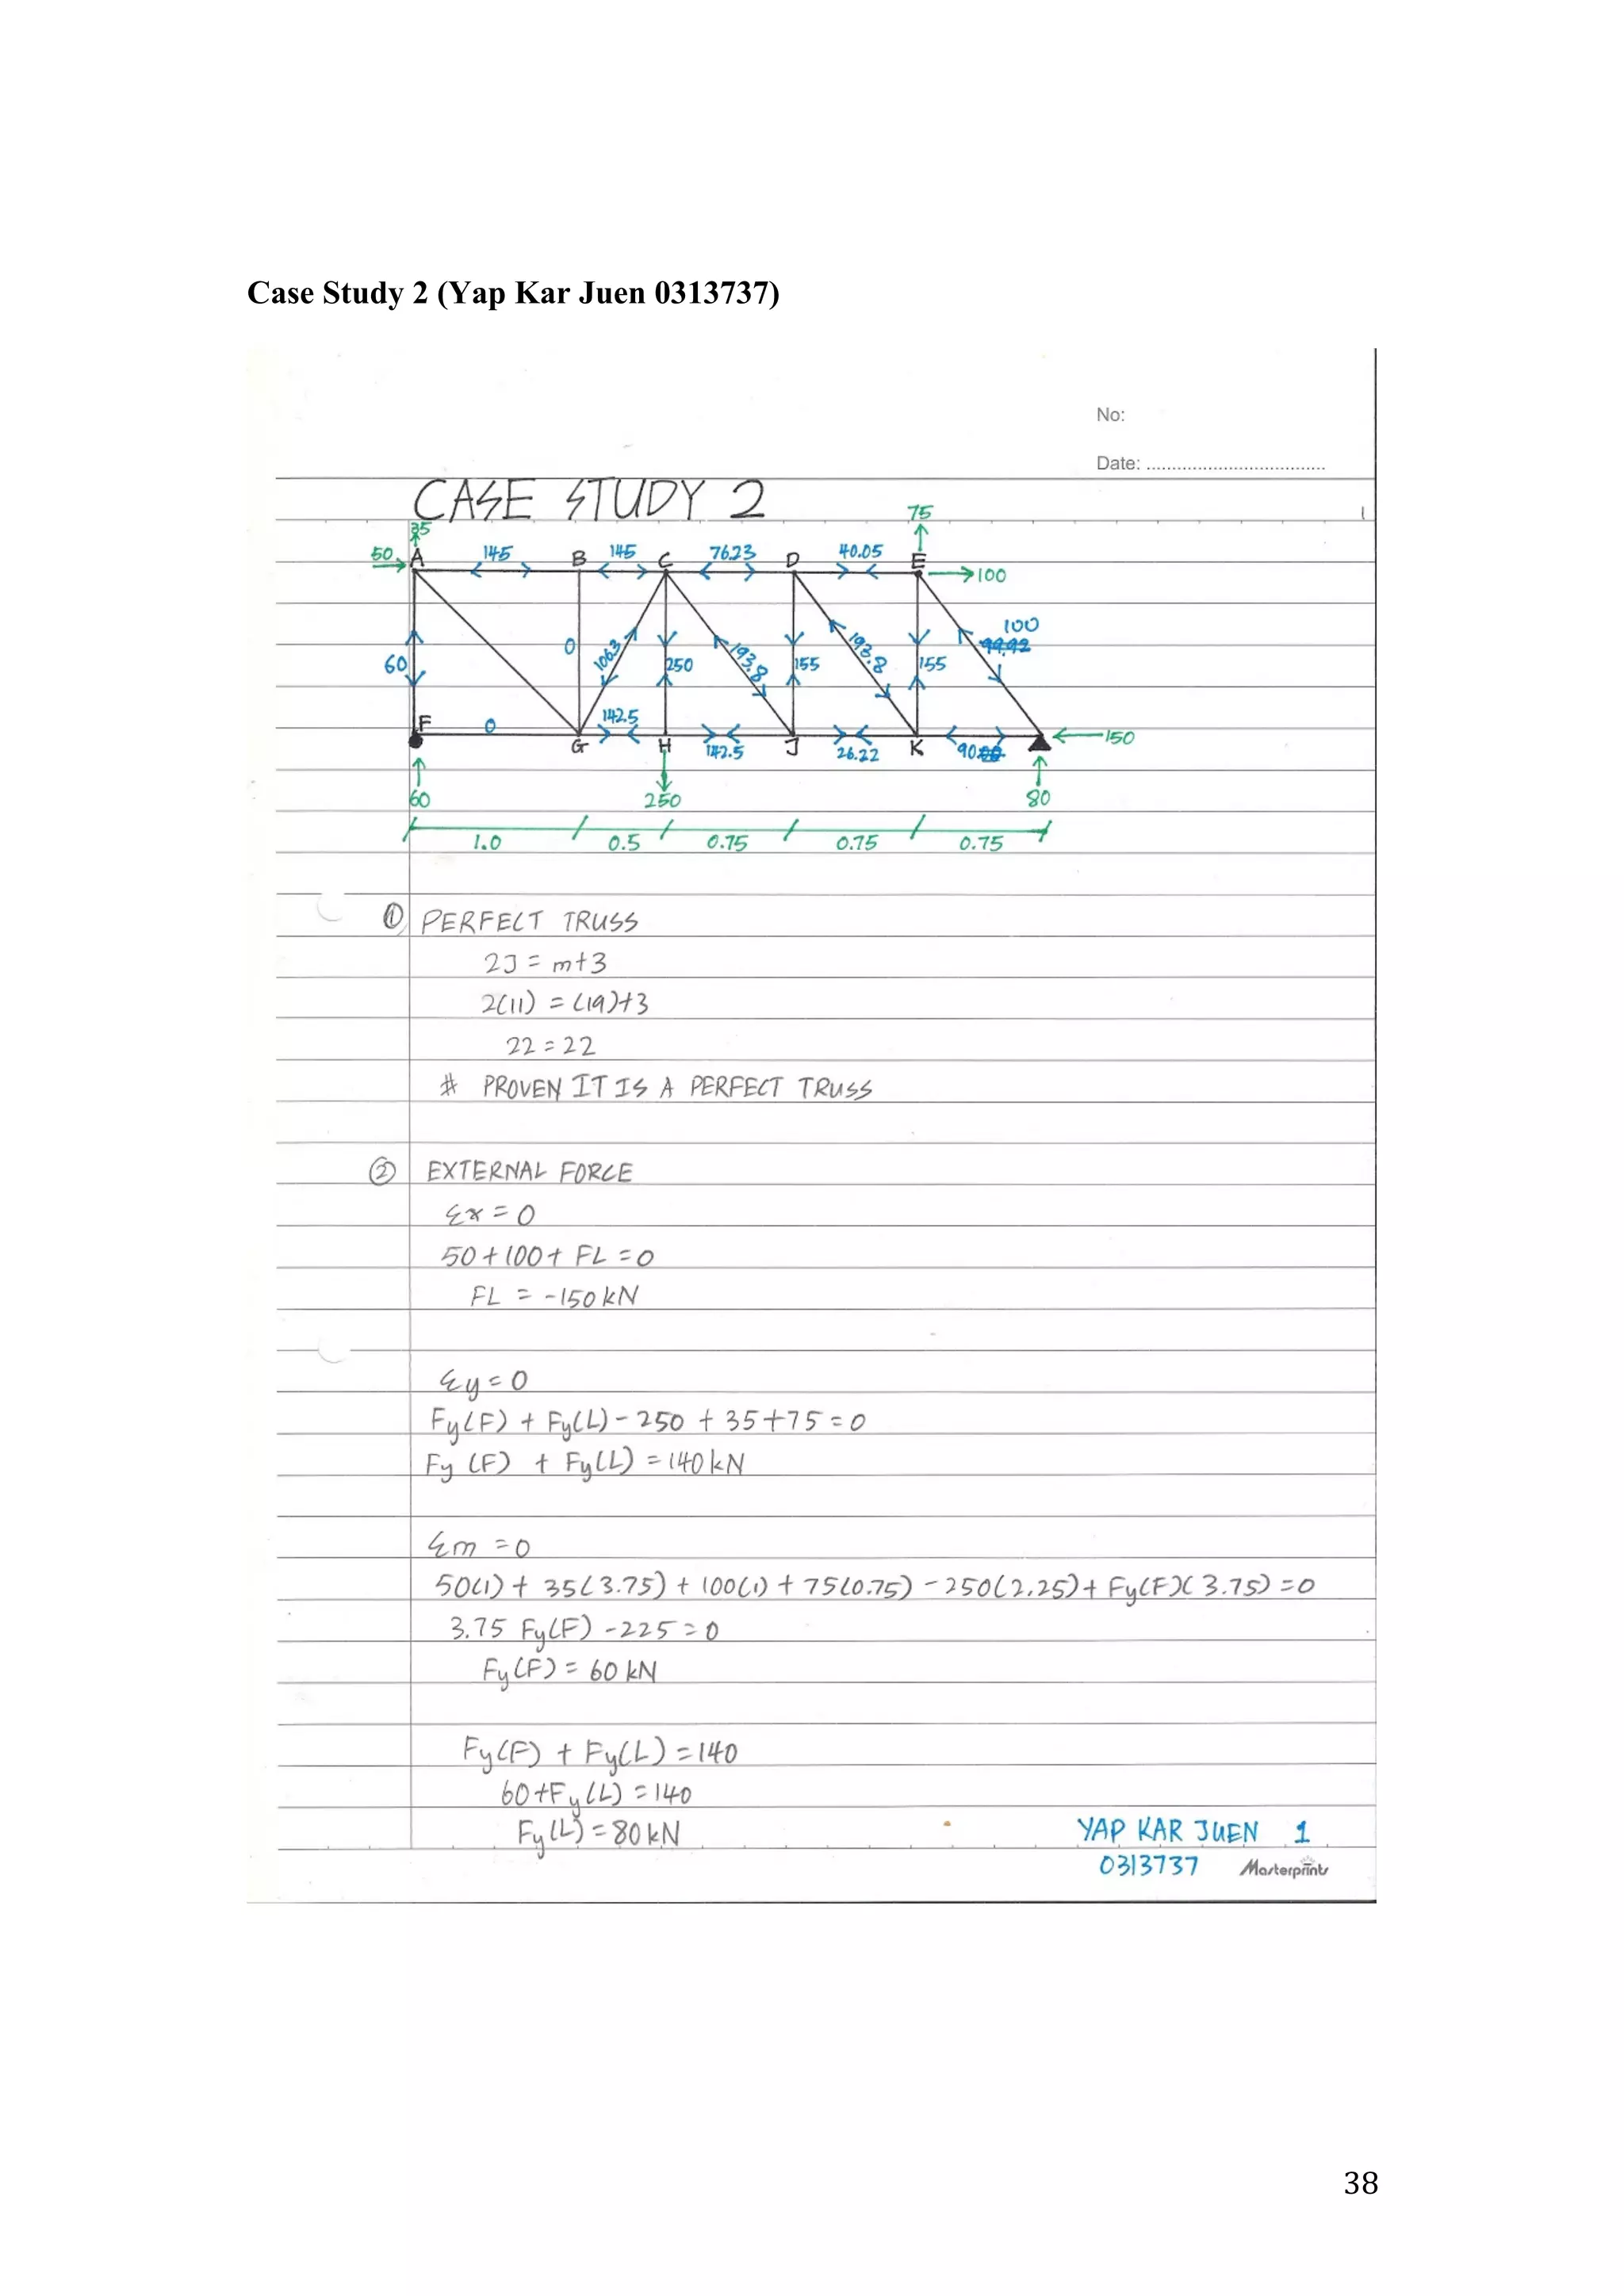 Case Study 2 (Yap Kar Juen 0313737)
No:
Date: ...................................
CASE STUDY 2
35
75
50
A
145
B
145
C
76.23
D
40.05
E
100
100
60
0
106.3
250
193.8
155
193.8
155
F
0
142.5
G
H
142.5
J
26.22
K
90
150
60
250
80
1.0
0.5
0.75
0.75
0.75
① PERFECT TRUSS
2J = m+3
2(11) = (19)+3
22 = 22
# PROVEN IT IS A PERFECT TRUSS
② EXTERNAL FORCE
Σx = 0
50 + 100 + FL = 0
FL = -150 kN
Σy = 0
Fy(F) + Fy(L) - 250 + 35 + 75 = 0
Fy (F) + Fy(L) = 140 kN
Σm = 0
50(1) + 35(3.75) + 100(1) + 75(0.75) - 250(2.25) + Fy(F)(3.75) = 0
3.75 Fy(F) - 225 = 0
Fy(F) = 60 kN
Fy(F) + Fy(L) = 140
60 + Fy(L) = 140
Fy(L) = 80 kN
YAP KAR JUEN 1
0313737 Masterprints
38